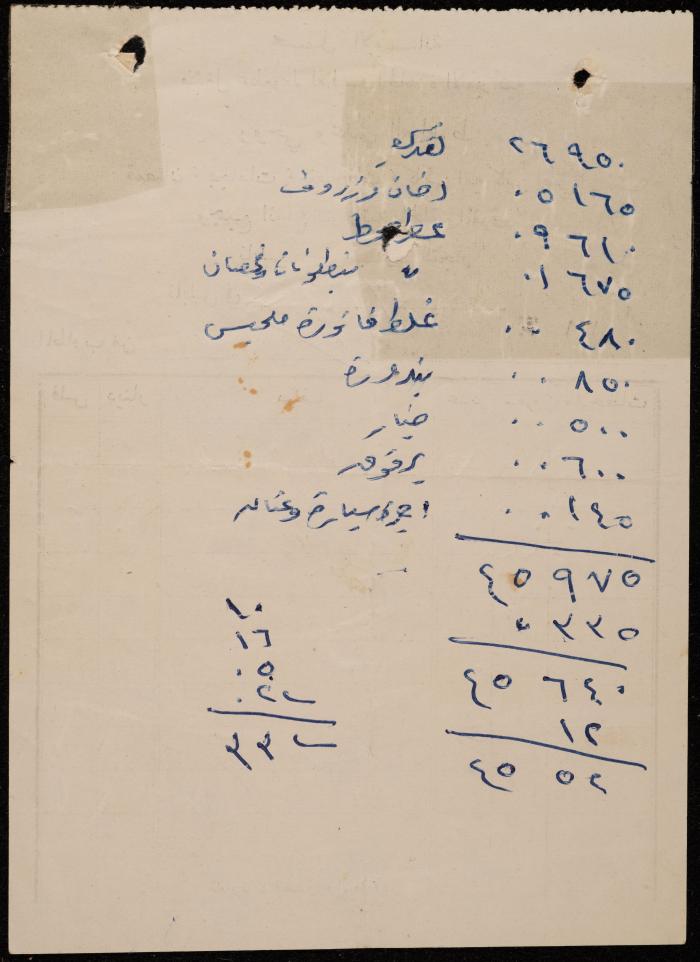 ٢٦ ٩٥٠ نقدي
٠٥ ١٦٥ دخان
٠٩ ٦١٠
٠١ ٦٧٥ " بنطلونات وقمصان
٠٠ ٤٨٠ غلط فاتورة ملحيس
٠٠ ٨٥٠ بندورة
٠٠ ٥٠٠ خيار
٠٠ ٦٠٠ برقوق
٠٠ ١٤٥ اجرة سيارة وعتاله
٤٥ ٩٧٥
٠ ٣٣٥
٤٥ ٦٤٠
١٢
٤٥ ٥٢
١٠
١٦
٠٥
٠٢٢
٣٣٢